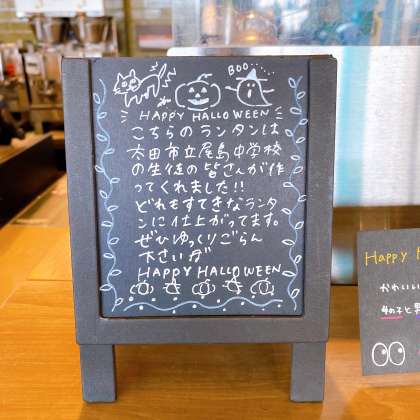 BOO
HAPPY HALLOWEEN
こちらのランタンは
太田市立尾島中学校
の生徒の皆さんが作
ってくれました!!
どれもすてきなランタ
ンに仕上がってます。
ぜひゆっくりごらん
下さい
HAPPY HALLOWEEN
Happy
かわいい